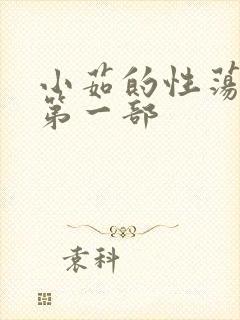 小茹的性荡
第一部
袁科